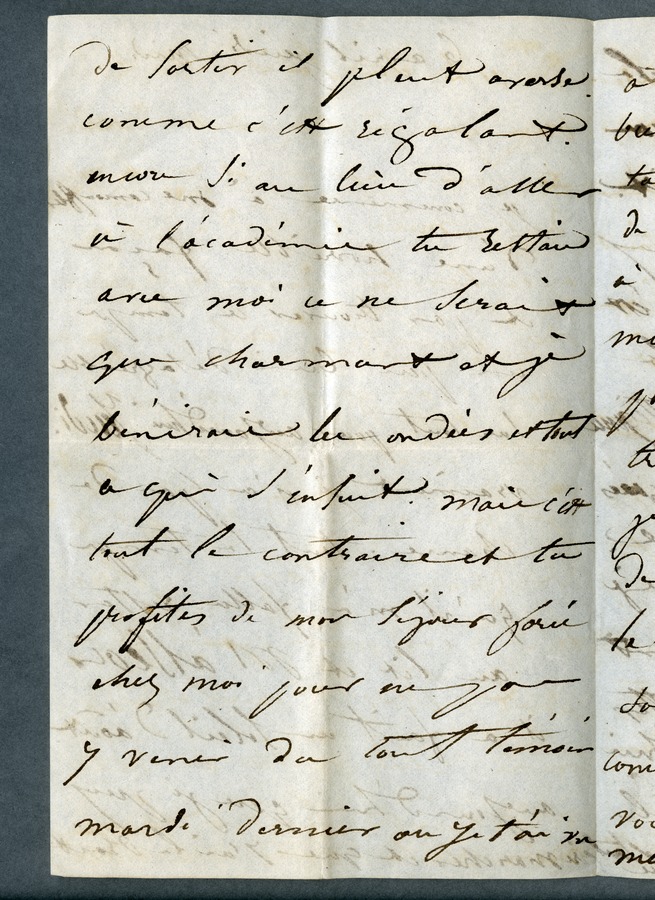 de sortir il pleut averse.
comme c'est régalant.
encore si au lieu d'aller
à l'académie tu restais
avec moi ce ne serait
que charmant et je
bénirais les ondées et tout
ce qui s'ensuit. mais c'est
tout le contraire et tu
profites de mon séjour forcé
chez moi pour ne pas
y venir du tout témoin
mardi dernier où je t'ai vu